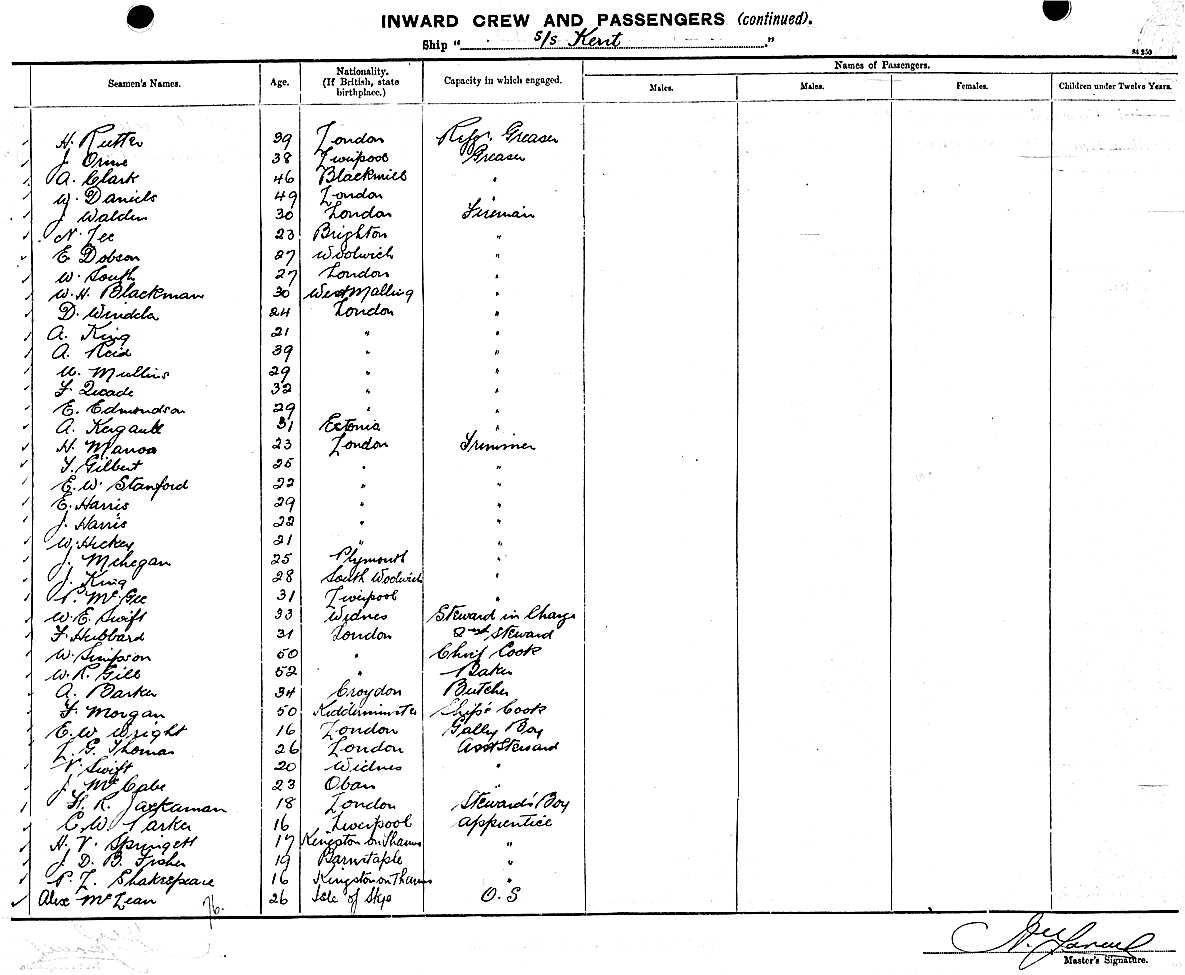 INWARD CREW AND PASSENGERS (continued).
Ship " S/S Kent ."
Names of Passengers.
Seamen's Names. Age. Nationality. (If British, state birthplace.) Capacity in which engaged. Males. Males. Females. Children under Twelve Years.
H. Rutter 39 London Refgr. Greaser
J. Orme 38 Liverpool Greaser
A. Clark 46 "
W. Daniels 49 London
J. Walden 30 London Fireman
N. Lee 23 Brighton "
E. Dobson 27 Woolwich "
W. South 27 London "
W. H. Blackman 30 West Malling "
D. 24 London "
A. King 21 " "
A. Reid 39 " "
W. Mullins 29 " "
F. Quade 32 " "
E. Edmondson 29 " "
A. 31 Estonia "
H. 23 London Trimmer
T. Gilbert 25 " "
E. W. Stanford 22 " "
E. Harris 29 " "
J. Harris 22 " "
W. Hickey 21 " "
J. Mehegan 25 Plymouth "
J. King 28 South Woolwich "
P. McGee 31 Liverpool "
W. E. Swift 33 Widnes Steward in Charge
F. Hubbard 31 London 2nd Steward
W. Simpson 50 " Chief Cook
W. R. Gill 52 " Baker
A. Barker 34 Croydon Butcher
F. Morgan 50 Kidderminster Ship's Cook
E. W. Wright 16 London Gally Boy
L. G. Thomas 26 London Asst Steward
V. Swift 20 Widnes "
J. McCabe 23 Oban "
H. R. Jackaman 18 London Steward's Boy
C. W. Parker 16 Liverpool Apprentice
H. V. Springett 17 Kingston on Thames "
J. D. B. Fisher 19 Barnstaple "
P. L. Shakespeare 16 Kingston on Thames "
Alex McLean 26 Isle of Skye O.S
76.
Master's Signature.